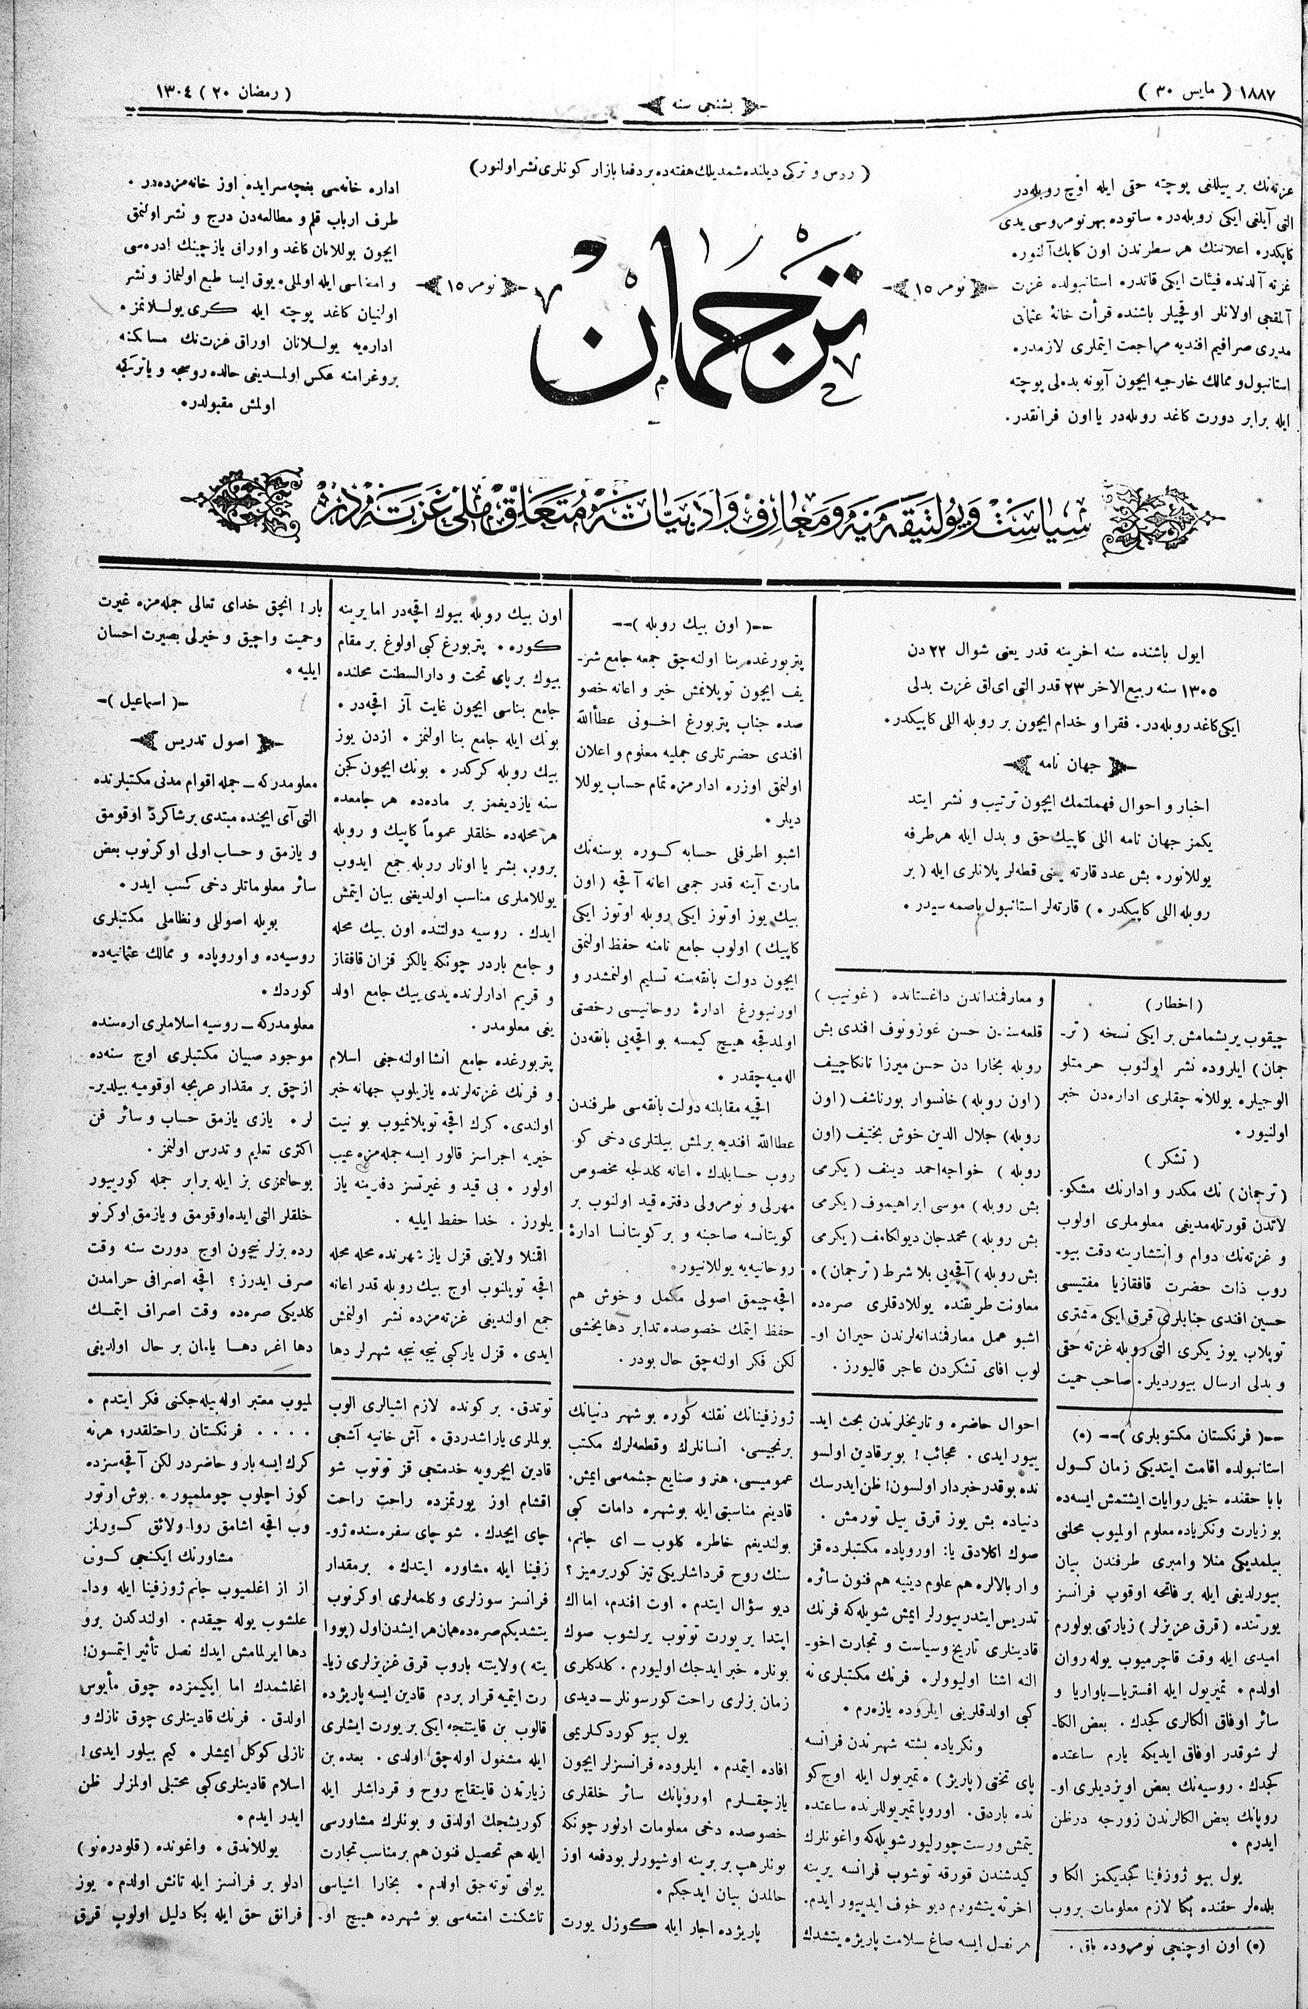 ١٨٨٧ ( مايس ٣٠ )
بشنجی سنه
( رمضان ٢٠ ) ١٣٠٤
( روس و ترکی ديلنده شمديلك هفته‌ده بر دفعا بازار کونلری نشر اولنور )
غزته‌نك بر ييللغی پوچته حقی ايله اوچ روبله‌در
التی آيلغی ايکی روبله‌در٠ ساتوده بهر نومروسی يدی
کاپکدر٠ اعلاننك هر سطرندن اون کاپك آلنور٠
غزته آلدنده فيئات ايکی قاتدر٠ استانبولده غزت
آلمقچی اولانلر اوقچيلر باشنده قرأت خانهٔ عثمانی
مديری صرافيم افنديه مراجعت ايتملری لازمدر٠
استانبول و ممالك خارجيه ايچون آبونه بدلی پوچته
ايله برابر دورت کاغد روبله‌در يا اون فرانقدر٠
نومر ١٥
ترجمان
نومر ١٥
اداره خانه‌سی بغچه‌سرايده اوز خانه‌مزده‌در ٠
طرف ارباب قلم و مطالعه‌دن درج و نشر اولنمق
ايچون يوللانان کاغد و اوراق يازچينك ادره‌سی
و امضاسی ايله اولملی٠ يوق ايسا طبع اولنماز و نشر
اولنيان کاغد پوچته ايله کری يوللانمز٠
اداره‌يه يوللانان اوراق غزت‌نك مسالکنه
پروغرامنه عکس اولمديغی حالده روسجه و يا ترکجه
اولمش مقبولدر٠
سياست و پولتيقه‌يه و معارف و ادبياته متعلق ملی غزته‌در
ايول باشنده سنه اخرينه قدر يعنی شوال ٢٢ دن
١٣٠٥ سنه ربيع الاخر ٢٣ قدر التی ای‌لق غزت بدلی
ايکی کاغد روبله‌در٠ فقرا و خدام ايچون بر روبله اللی کاپيکدر٠
جهان نامه
اخبار و احوال فهملتمك ايچون ترتيب و نشر ايتد
يکمز جهان نامه اللی کاپيك حق و بدل ايله هر طرفه
يوللانور٠ بش عدد قارته يعنی قطعه‌لر پلانلری ايله ( بر
روبله اللی کاپيکدر ٠ ) قارته‌لر استانبول باصمه سيدر ٠
( اخطار )
چيقوب يريشمامش بر ايکی نسخه ( تر-
جمان ) ايلروده نشر اولنوب حرمتلو
الوجيلره يوللانه جقلری اداره‌دن خبر
اولنيور ٠
( تشکر )
( ترجمان ) نك مکدر و ادارنك مشکو-
لاتدن قورتله‌مديغی معلوملری اولوب
و غزته‌نك دوام و انتشارينه دقت بيو-
روب ذات حضرت قافقازيا مفتيسی
حسين افندی جنابلری قرق ايکی مشتری
توپلاب يوز يکری التی روبله غزته حقی
و بدلی ارسال بيورديلر٠ صاحب حميت
و معارفمنداندن داغستانده ( غونيب )
قلعه‌سندن حسن غوزونوف افندی بش
روبله بخارا دن حسن ميرزا تانکاچييف
( اون روبله ) خانسوار بورناشف ( اون
روبله ) جلال الدين خوش بختيف ( اون
روبله ) خواجه احمد دينف ( يکرمی
بش روبله ) موسی ابراهيموف ( يکرمی
بش روبله ) محمدجان ديولکامف ( يکرمی
بش روبله ) آقچه‌يی بلا شرط ( ترجمان ) ٠
معاونت طريقنده يوللادقلری صره‌ده
اشبو همل معارفمندانه‌لرندن حيران او-
لوب افای تشکردن عاجر قاليورز ٠
--( اون بيك روبله )--
پتربورغده بنا اولنه‌جق جمعه جامع شر-
يف ايچون توپلانمش خير و اعانه خصو
صده جناب پتربورغ اخونی عطاءالله
افندی حضرتلری جمليه معلوم و اعلان
اولنمق اوزره ادارمزه تمام حساب يوللا
ديلر ٠
اشبو اطرفلی حسابه کوره بو سنه‌نك
مارت آينه قدر جمعی اعانه آقچه ( اون
بيك يوز اوتوز ايکی روبله اوتوز ايکی
کاپيك ) اولوب جامع نامنه حفظ اولنمق
ايچون دولت بانقه‌سنه تسليم اولنمشدر و
اورنبورغ ادارهٔ روحانيسی رخصتی
اولمدقجه هيچ کيمسه بو اقچه‌يی بانقه‌دن
اله‌ميه‌جقدر ٠
اقچيه مقابلنه دولت بانقه‌سی طرفندن
عطاالله افنديه برلمش بيلتلری دخی کو
روب حسابلدك ٠ اعانه کلدلجه مخصوص
مهرلی و نومرولی دفتره قيد اولنوب بر
کويتانسه صاحبنه و بر کويتانسا ادارهٔ
روحانيه‌يه يوللانيور٠
اقچه جيمق اصولی مکمل و خوش هم
حفظ ايتمك خصوصده تدابر دها يخشی
لکن فکر اولنه‌جق حال بودر ٠
اون بيك روبله بيوك اقچه‌در اما يرينه
کوره ٠ پتربورغ کبی اولوغ بر مقام
بيوك بر پای تحت و دارالسطنت محلنده
جامع بناسی ايچون غايت آز اقچه‌در ٠
بونك ايله جامع بنا اولنمز ٠ ازدن يوز
بيك روبله کرکدر ٠ بونك ايچون کچن
سنه يازديغمز بر ماده‌ده هر جامعده
هر محله‌ده خلقلر عموماً کاپيك و روبله
بروب، بشر يا اونار روبله جمع ايدوب
يوللاملری مناسب اولديغی بيان ايتمش
ايدك ٠ روسيه دولتنده اون بيك محله
و جامع باردر چونکه يالکز قزان قافقاز
و قريم ادارلرنده يدی بيك جامع اولد
يغی معلومدر ٠
پتربورغده جامع انشا اولنه‌جغی اسلام
و فرنك غزته‌لرنده يازيلوب جهانه خبر
اولندی٠ کرك اقچه توپلانميوب بو نيت
خيريه اجراسز قالور ايسه جمله‌مزه عيب
اولور ٠ بی قيد و غيرتسز دفرينه ياز
يلورز ٠ خدا حفظ ايليه ٠
اقمنلا ولايتی قزل ياز شهرنده محله محله
اقچه توپلنوب اوج بيك روبله قدر اعانه
جمع اولنديغی غزته‌مزده نشر اولنمش
ايدی ٠ قزل يار کبی نيجه نيجه شهرلر دها
بار ! انجق خدای تعالی جمله‌مزه غيرت
و حميت و اچيق و خيرلی بصيرت احسان
ايليه ٠
-( اسماعيل )-
اصول تدريس
معلومدرکه ــ جمله اقوام مدنی مکتبلرنده
التی آی ايچنده مبتدی بر شاکرد اوقومق
و يازمق و حساب اولی اوکرنوب بعض
سائر معلوماتلر دخی کسب ايدر ٠
بويله اصوللی و نظاملی مکتبلری
روسيه‌ده و اوروپاده و ممالك عثمانيه‌ده
کوردك ٠
معلومدرکه ــ روسيه اسلاملری اره‌سنده
موجود صبيان مکتبلری اوج سنه‌ده
ازچق بر مقدار عربجه اوقوميه بيلدير-
لر ٠ يازی يازمق حساب و سائر فن
اکثری تعليم و تدرس اولنمز ٠
بو حالمزی بز ايله برابر جمله کوريور
خلقلر التی ايده اوقومق و يازمق اوکرنو
رده بزلر نيچون اوج دورت سنه وقت
صرف ايدرز ؟ اقچه اصرافی حرامدن
کلديکی صره‌ده وقت اصراف ايتمك
دها اغر دها يامان بر حال اولديغی
--( فرنکستان مکتوبلری )-- (٠)
استانبولده اقامت ايتديکی زمان کول
بابا حقنده خيلی روايات ايشتمش ايسه‌ده
بو زيارت ونکرياده معلوم اولميوب محلنی
بيلمديکی منلا وامبری طرفندن بيان
بيورلديغی ايله بر فاتحه اوقوب فرانسز
يورتنده ( قرق عزيزلر ) زيارتی بولورم
اميدی ايله وقت قاچرميوب يوله روان
اولدم ٠ تميريول ايله افستريا ــ باواريا و
سائر اوفاق الکالری کجدك ٠ بعض الکا-
لر شوقدر اوفاق ايديکه يارم ساعتده
کجدك ٠ روسيه‌نك بعض اويزديلری او-
روپانك بعض الکالرندن زورجه در ظن
ايدرم ٠
يول بيو ژوزفينا کجديکمز الکا و
بلده‌لر حقنده بکا لازم معلومات بروب
(٠) اون اوچنجی نومروده باق ٠
احوال حاضره و تاريخلرندن بحث ايد-
ييور ايدی ٠ عجائب ! بو بر قادين اولسو
نده بو قدر خبردار اولسون ! ظن ايدرسك
دنياده بش يوز قرق ييل تورمش ٠
صوك اکلادق يا : اوروپاده مکتبلرده قز
و ار بالالره هم علوم دينيه هم فنون سائره
تدريس ايتدريييورلر ايمش شويله که فرنك
قادينلری تاريخ و سياست و تجارت اخو-
النه اشنا اوليوولر ٠ فرنك مکتبلری نه
کبی اولدقلرينی ايلروده يازه‌رم ٠
ونکرياده بشته شهرندن فرانسه
پای تختی ( پاريژ ) ٠ تميريول ايله اوج کو
نده باردق ٠ اوروپا تميريوللرنده ساعتده
يتمش ورست چورليور شويله که واغونلرك
کيدشندن قورقه توشوب فرانسه يرينه
اخرته يتشورم ديو خوف ايدييور ايدم ٠
هر نصل ايسه صاغ سلامت پاريژه يتشدك
ژوزفينانك نقلنه کوره بو شهر دنيانك
برنجيسی، انسانلرك و قطعه‌لرك مکتب
عموميسی، هنر و صنايع چشمه‌سی ايمش.
قادينم مناسبتی ايله بو شهره دامات کبی
بولنديغم خاطره کلوب ــ ای جانم،
سنك روح قرداشلريکی تيز کوررميز ؟
ديو سؤال ايتدم ٠ اوت افندم، اما اك
ابتدا بر يورت توتوب يرلشوب صوك
بونلره خبر ايدجك اوليورم ٠ کلدکلری
زمان بزلری راحت کورسونلر ــ ديدی
يول بيو کوردکلريمی
افاده ايتمدم ٠ ايلروده فرانسزلر ايچون
يازجقلرم اوروپانك سائر خلقلری
خصوصده دخی معلومات ارئور چونکه
بونلر هپ بر برينه اوشيورلر بو دفعه اوز
حالمدن بيان ايدجکم ٠
پاريژده اجار ايله کوزل يورت
توتدق. بر کونده لازم اشيالری الوب
بولملری ياراشدردق ٠ آش خانيه آشجی
قادين ايچرويه خدمتجی قز توتوب شو
اقشام اوز يورتمزده راحت راحت
چای ايچدك ٠ شو چای سفره‌سنده ژو-
زفينا ايله مشاوره ايتدك ٠ بر مقدار
فرانسز سوزلری و کلمه‌لری اوکرنوب
يتشديکم صره‌ده همان هر ايشدن اول ( پووا
يته ) ولايتنه باروب قرق عزيزلری زيا-
رت ايتميه قرار بردم قادين ايسه پاريژده
قالوب بن قايتنجه ايکی بر يورت ايشلری
ايله مشغول اوله‌جق اولدی ٠ بعده بن
زيارتدن قايتقاج روح و قرداشلر ايله
کوريشجك اولدق و بونلرك مشاورسی
ايله هم تحصيل فنون هم بر مناسب تجارت
يوانی توته‌جق اولدم ٠ بخارا اشياسی
تاشکنت امتعه‌سی بو شهرده هيچ او-
لميوب معتبر اوله بيله جکنی فکر ايتدم ٠
٠ ٠ ٠ ٠ فرنکستان راحتلقدر؛ هر نه
کرك ايسه بار و حاضردر لکن آقچه‌سزده
کوز اچلوب چوملميور ٠ بوش اوتور
وب اقچه اشامق روا و لائق کورلمز
مشاورنك ايکنجی کونی
از از اغلميوب جانم ژوزفينا ايله ودا-
علشوب يوله چيقدم ٠ اولندکدن برو
دها ايرلمامش ايدك نصل تأثير ايتمسون !
اغلشمدك اما ايکيمزده چوق مأيوس
اولدق ٠ فرنك قادينلری چوق نازك و
نازلی کوکل ايمشلر ٠ کيم بيلور ايدی !
اسلام قادينلری کبی محتبلی اولمزلر ظن
ايدر ايدم ٠
يوللاندق ٠ واغونده ( قلودره‌نو )
ادلو بر فرانسز ايله تانش اولدم ٠ يوز
فرانق حق ايله بکا دليل اولوب قرق